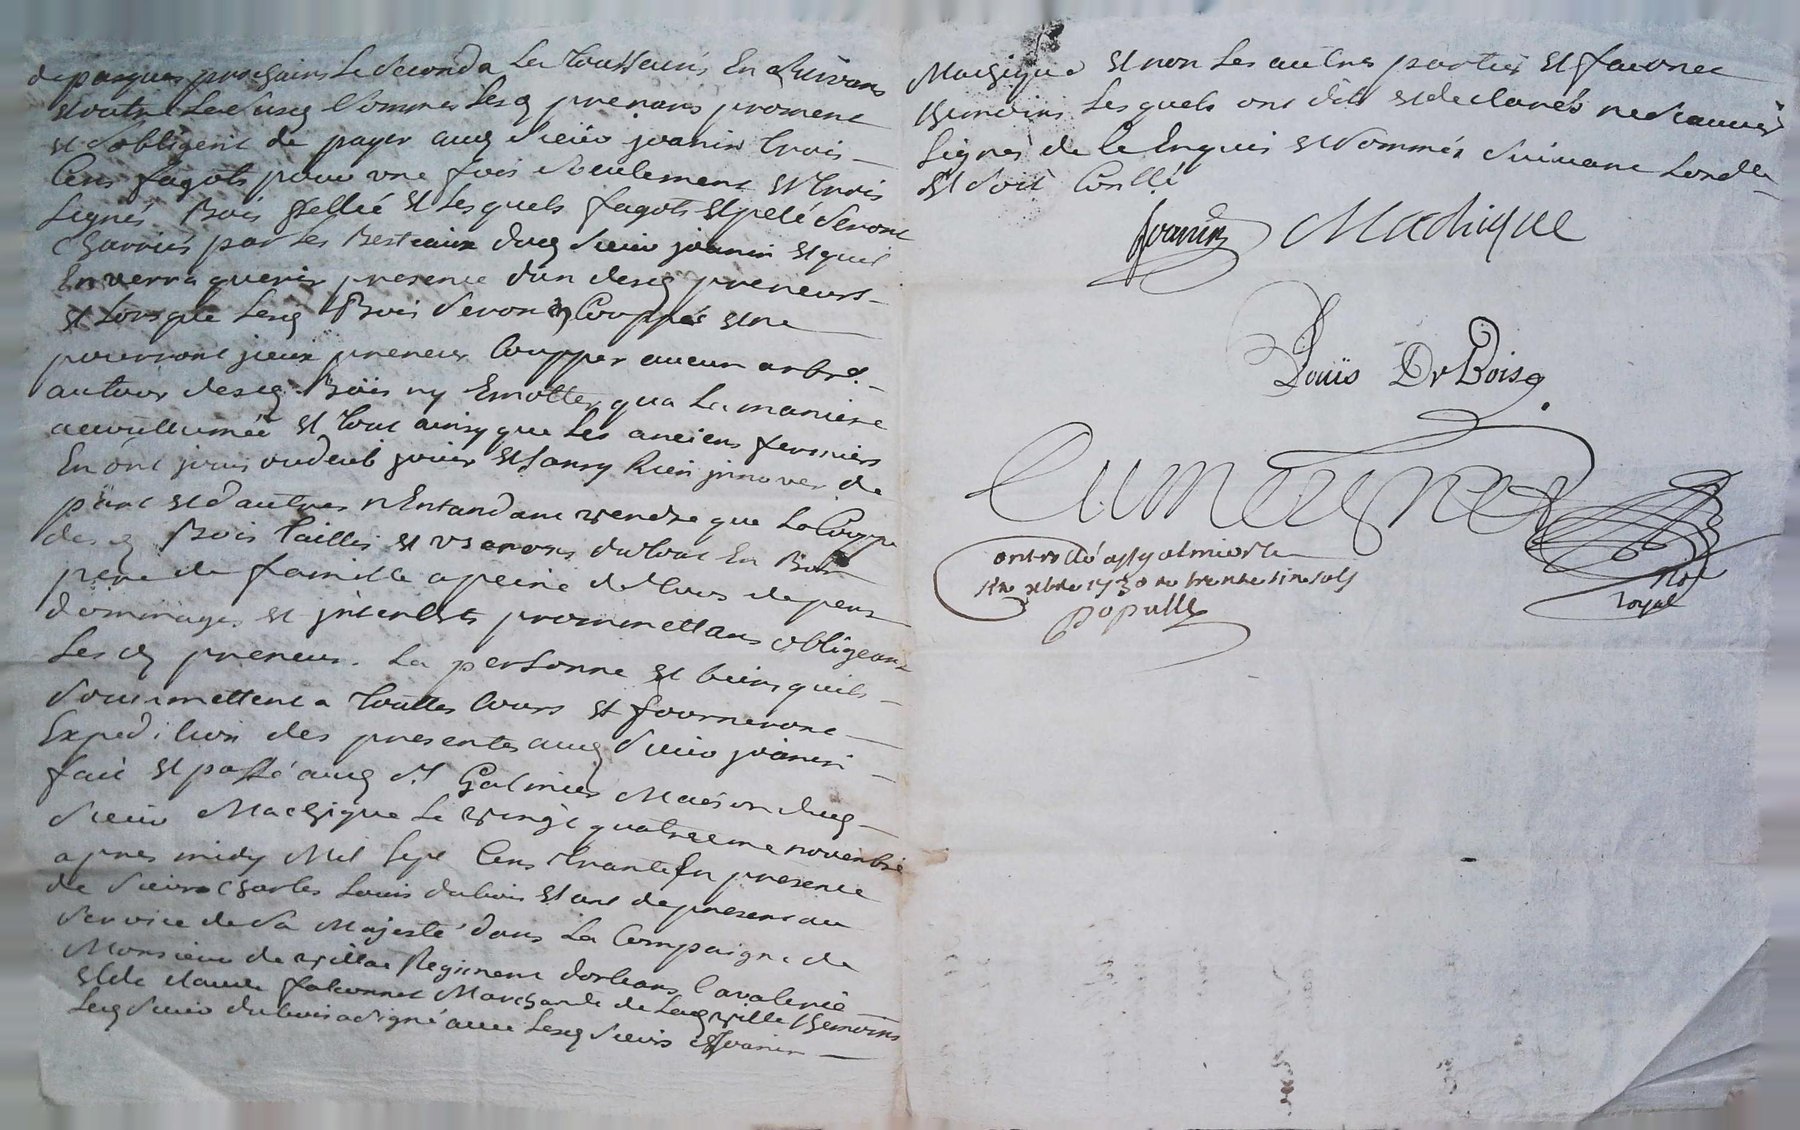 de pasques prochain le second a la toussaint En suivans
Et outre Le susd sommes Lesd prenans promett
et sobligent de payer aud sieur joanin trois
Cens fagots pour une fois seulement et trois
signes Bois et Lesquels fagots et pelé seront
Charriés par les Bestiaux dud sieur joanin et quil
Enverra querir presence dun desd preneurs
et Lorsque Lesd Bois seront Couppés et ne
pourront preneur Coupper aucun arbre
autour desd Bois ny Emotter qua La maniere
accoultumée et tout ainsy que Les anciens fermiers
En ont jouis ou deub jouir et sans Rien jnnover de
part et dautres nEntandant vendre que La Couppe
desd Bois taillis et useront du tout En Bon
pere de famille a peine de tous depens
dommages et jnterests promettans obligeans
Lesd preneur La personne et biens quils
soumettent a touttes Cours et fourniront
Expedition des presentes aud sieur joanin
fait et passé aud St Galmier Maison dud
sieur Machique Le vingt quatrieme novembre
apres midy Mil sept Cens trante En presence
de sieur Charles Louis dubois Etant de present au
service de sa Majesté dans La Compaigne de
Monsieur de villar Regiment dorleans Cavalerie
et de claude falconnet Marchand de Lad ville themoins
Led sieur dubois a signé avec Lesd sieurs Joanin
Machique et non Les autres parties et faconet
themoins Lesquels ont dit et declarés ne scavoir
signer de Ce Enquis et sommés suivant Lord
Et soit Conllé
Joanin Machique
Louïs DuBois
Cumeignet
not
royal
ontrollé a st galmier le
xbre 1730 Re trente sols
popull